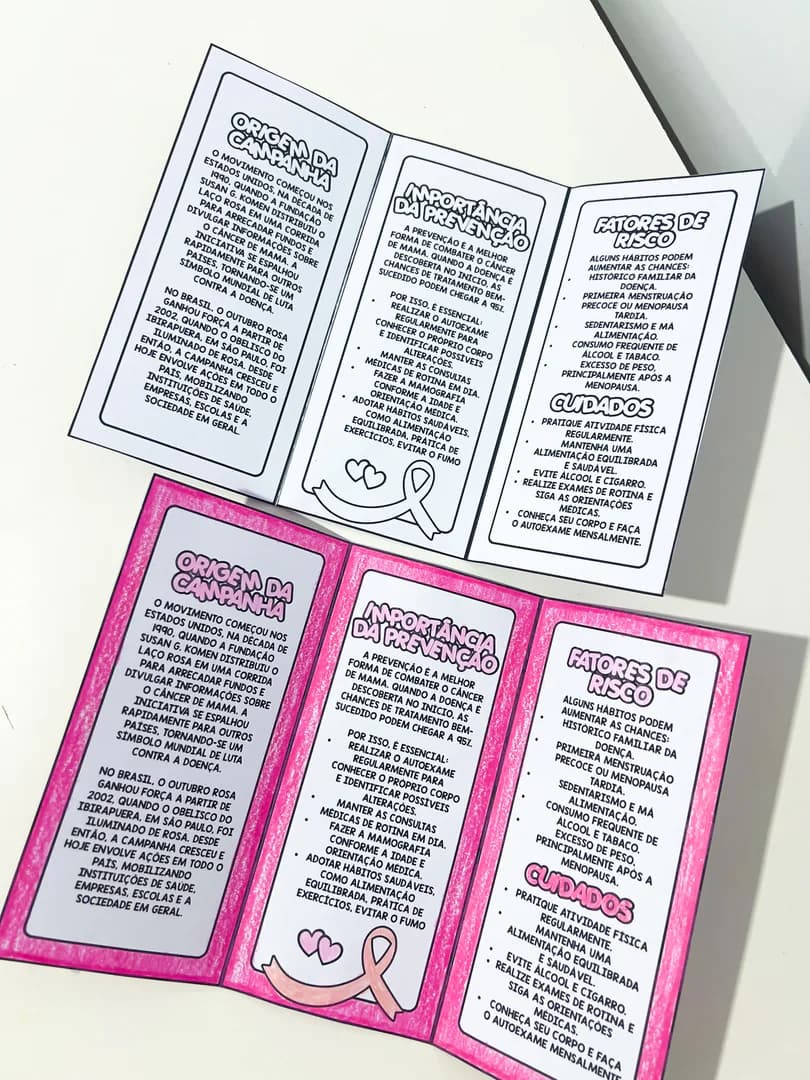 ORIGEM DA
CAMPANHA
O MOVIMENTO COMEÇOU NOS
ESTADOS UNIDOS, NA DÉCADA DE
1990, QUANDO A FUNDAÇÃO
SUSAN G. KOMEN DISTRIBUIU O
LAÇO ROSA EM UMA CORRIDA
PARA ARRECADAR FUNDOS E
DIVULGAR INFORMAÇÕES SOBRE
O CÂNCER DE MAMA. A
INICIATIVA SE ESPALHOU
RAPIDAMENTE PARA OUTROS
PAÍSES, TORNANDO-SE UM
SÍMBOLO MUNDIAL DE LUTA
CONTRA A DOENÇA.
NO BRASIL, O OUTUBRO ROSA
GANHOU FORÇA A PARTIR DE
2002, QUANDO O OBELISCO DO
IBIRAPUERA, EM SÃO PAULO, FOI
ILUMINADO DE ROSA. DESDE
ENTÃO, A CAMPANHA CRESCEU E
HOJE ENVOLVE AÇÕES EM TODO O
PAÍS, MOBILIZANDO
INSTITUIÇÕES DE SAÚDE,
EMPRESAS, ESCOLAS E A
SOCIEDADE EM GERAL.
IMPORTÂNCIA
DA PREVENÇÃO
A PREVENÇÃO É A MELHOR
FORMA DE COMBATER O CÂNCER
DE MAMA. QUANDO A DOENÇA É
DESCOBERTA NO INÍCIO, AS
CHANCES DE TRATAMENTO BEM-
SUCEDIDO PODEM CHEGAR A 95%.
POR ISSO, É ESSENCIAL:
• REALIZAR O AUTOEXAME
REGULARMENTE PARA
CONHECER O PRÓPRIO CORPO
E IDENTIFICAR POSSÍVEIS
ALTERAÇÕES.
• MANTER AS CONSULTAS
MÉDICAS DE ROTINA EM DIA.
• FAZER A MAMOGRAFIA
CONFORME A IDADE E
ORIENTAÇÃO MÉDICA.
• ADOTAR HÁBITOS SAUDÁVEIS,
COMO ALIMENTAÇÃO
EQUILIBRADA, PRÁTICA DE
EXERCÍCIOS, EVITAR O FUMO
FATORES DE
RISCO
ALGUNS HÁBITOS PODEM
AUMENTAR AS CHANCES:
• HISTÓRICO FAMILIAR DA
DOENÇA.
• PRIMEIRA MENSTRUAÇÃO
PRECOCE OU MENOPAUSA
TARDIA.
• SEDENTARISMO E MÁ
ALIMENTAÇÃO.
• CONSUMO FREQUENTE DE
ÁLCOOL E TABACO.
• EXCESSO DE PESO,
PRINCIPALMENTE APÓS A
MENOPAUSA.
CUIDADOS
• PRATIQUE ATIVIDADE FÍSICA
REGULARMENTE.
• MANTENHA UMA
ALIMENTAÇÃO EQUILIBRADA
E SAUDÁVEL.
• EVITE ÁLCOOL E CIGARRO.
• REALIZE EXAMES DE ROTINA E
SIGA AS ORIENTAÇÕES
MÉDICAS.
• CONHEÇA SEU CORPO E FAÇA
O AUTOEXAME MENSALMENTE.
ORIGEM DA
CAMPANHA
O MOVIMENTO COMEÇOU NOS
ESTADOS UNIDOS, NA DÉCADA DE
1990, QUANDO A FUNDAÇÃO
SUSAN G. KOMEN DISTRIBUIU O
LAÇO ROSA EM UMA CORRIDA
PARA ARRECADAR FUNDOS E
DIVULGAR INFORMAÇÕES SOBRE
O CÂNCER DE MAMA. A
INICIATIVA SE ESPALHOU
RAPIDAMENTE PARA OUTROS
PAÍSES, TORNANDO-SE UM
SÍMBOLO MUNDIAL DE LUTA
CONTRA A DOENÇA.
NO BRASIL, O OUTUBRO ROSA
GANHOU FORÇA A PARTIR DE
2002, QUANDO O OBELISCO DO
IBIRAPUERA, EM SÃO PAULO, FOI
ILUMINADO DE ROSA. DESDE
ENTÃO, A CAMPANHA CRESCEU E
HOJE ENVOLVE AÇÕES EM TODO O
PAÍS, MOBILIZANDO
INSTITUIÇÕES DE SAÚDE,
EMPRESAS, ESCOLAS E A
SOCIEDADE EM GERAL.
IMPORTÂNCIA
DA PREVENÇÃO
A PREVENÇÃO É A MELHOR
FORMA DE COMBATER O CÂNCER
DE MAMA. QUANDO A DOENÇA É
DESCOBERTA NO INÍCIO, AS
CHANCES DE TRATAMENTO BEM-
SUCEDIDO PODEM CHEGAR A 95%.
POR ISSO, É ESSENCIAL:
• REALIZAR O AUTOEXAME
REGULARMENTE PARA
CONHECER O PRÓPRIO CORPO
E IDENTIFICAR POSSÍVEIS
ALTERAÇÕES.
• MANTER AS CONSULTAS
MÉDICAS DE ROTINA EM DIA.
• FAZER A MAMOGRAFIA
CONFORME A IDADE E
ORIENTAÇÃO MÉDICA.
• ADOTAR HÁBITOS SAUDÁVEIS,
COMO ALIMENTAÇÃO
EQUILIBRADA, PRÁTICA DE
EXERCÍCIOS, EVITAR O FUMO
FATORES DE
RISCO
ALGUNS HÁBITOS PODEM
AUMENTAR AS CHANCES:
• HISTÓRICO FAMILIAR DA
DOENÇA.
• PRIMEIRA MENSTRUAÇÃO
PRECOCE OU MENOPAUSA
TARDIA.
• SEDENTARISMO E MÁ
ALIMENTAÇÃO.
• CONSUMO FREQUENTE DE
ÁLCOOL E TABACO.
• EXCESSO DE PESO,
PRINCIPALMENTE APÓS A
MENOPAUSA.
CUIDADOS
• PRATIQUE ATIVIDADE FÍSICA
REGULARMENTE.
• MANTENHA UMA
ALIMENTAÇÃO EQUILIBRADA
E SAUDÁVEL.
• EVITE ÁLCOOL E CIGARRO.
• REALIZE EXAMES DE ROTINA E
SIGA AS ORIENTAÇÕES
MÉDICAS.
• CONHEÇA SEU CORPO E FAÇA
O AUTOEXAME MENSALMENTE.